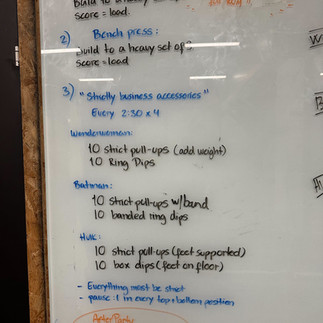 Build to a heavy
score = load.
2) Bench press:
Build to a heavy set of 3
score = load
3) "Strictly business accessories"
Every 2:30 x 4
Wonderwoman:
10 strict pull-ups (add weight)
10 Ring Dips
Batman:
10 strict pull-ups w/band
10 banded ring dips
Hulk:
10 strict pull-ups (feet supported)
10 box dips (feet on floor)
- Everything must be strict
- pause :1 in every top + bottom position
After Party